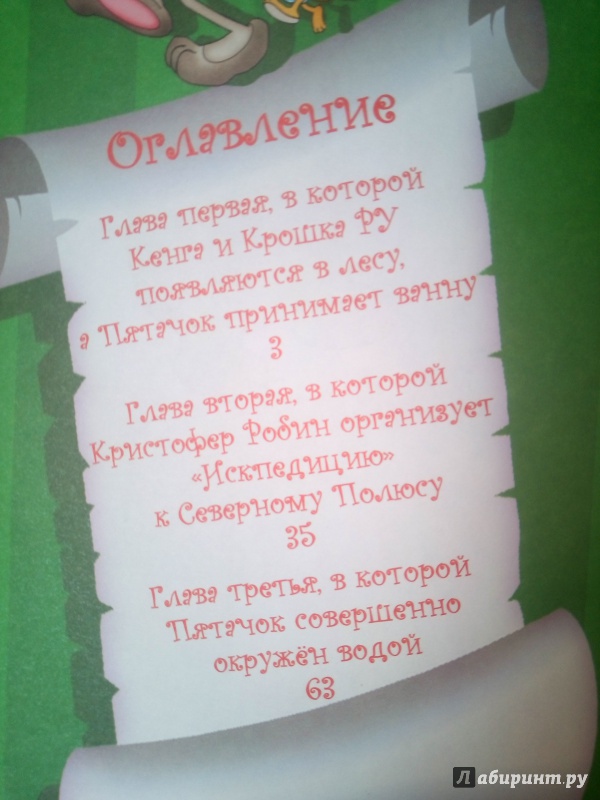 Оглавление
Глава первая, в которой
Кенга и Крошка РУ
появляются в лесу,
а Пятачок принимает ванну
3
Глава вторая, в которой
Кристофер Робин организует
«Искпедицию»
к Северному Полюсу
35
Глава третья, в которой
Пятачок совершенно
окружён водой
63
Лабиринт.ру